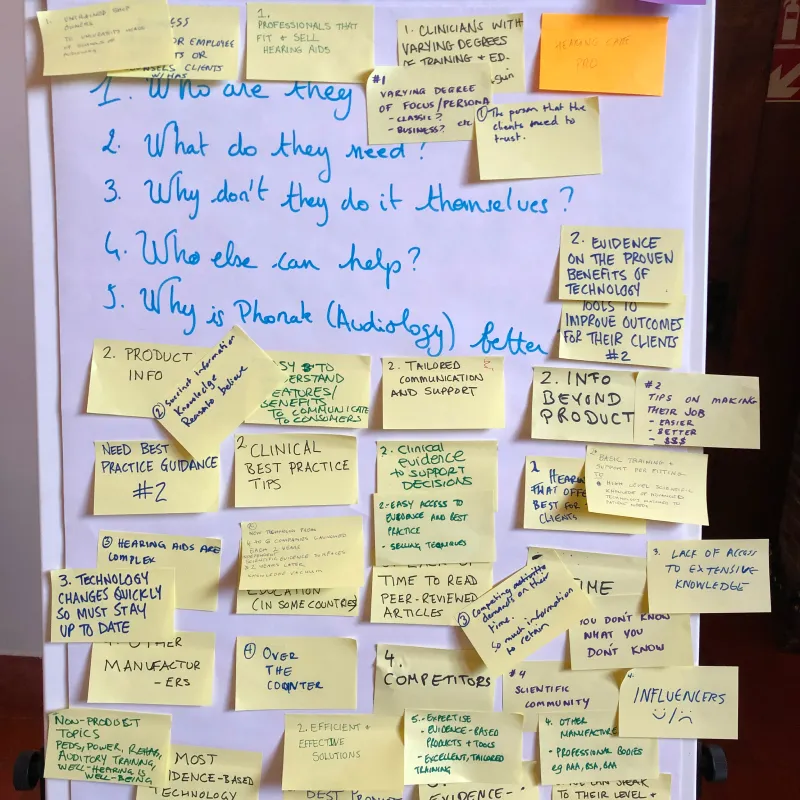 SS
OR EMPLOYEE
TS OR
NSELS CLIENTS
W/HAS
1.
PROFESSIONALS THAT
FIT + SELL
HEARING AIDS
1. CLINICIANS WITH
VARYING DEGREES
OF TRAINING + ED.
HEARING CARE
PRO
#1
VARYING DEGREE
OF FOCUS/PERSONA
- CLASSIC?
- BUSINESS? etc
① The person that the
clients need to
trust.
1. Who are they
2. What do they need?
3. Why don't they do it themselves?
4. Who else can help?
5. Why is Phonak (Audiology) better
2. EVIDENCE
ON THE PROVEN
BENEFITS OF
TECHNOLOGY
TOOLS TO
IMPROVE OUTCOMES
FOR THEIR CLIENTS
#2
2. PRODUCT
INFO
② Succinct information
Knowledge
Reason to believe
SY TO
ERSTAND
EATURES/
BENEFITS
TO COMMUNICATE
TO CONSUMERS
2. TAILORED
COMMUNICATION
AND SUPPORT
2. INFO
BEYOND
PRODUCT
#2
TIPS ON MAKING
THEIR JOB
- EASIER
- BETTER
- $$$
NEED BEST
PRACTICE GUIDANCE
#2
2 CLINICAL
BEST PRACTICE
TIPS
2. Clinical
evidence
to support
DECISIONS
2 - EASY ACCESS TO
EVIDENCE AND BEST
PRACTICE
- SELLING TEQNIQUES
2
HEARIN
THAT OFFE
BEST FOR
CLIENTS
2. BASIC TRAINING +
SUPPORT FOR FITTING
HIGH LEVEL SCIENTIFIC
KNOWLEDGE OF ADVANCED
TECHNOLOGY
PATIENT NEEDS
③ HEARING AIDS ARE
COMPLEX
3. TECHNOLOGY
CHANGES QUICKLY
SO MUST STAY
UP TO DATE
COMPANIES LAUNCHED
SCIENTIFIC EVIDENCE SURFACES
2 YEARS LATER
KNOWLEDGE VACUUM
EDUCATION
(IN SOME COUNTRIES)
TIME TO READ
PEER-REVIEWED
ARTICLES
③ Competing
demands on their
time.
So much information
to retain
IME
YOU DON'T KNOW
WHAT YOU
DON'T KNOW
3. LACK OF ACCESS
TO EXTENSIVE
KNOWLEDGE
OTHER
MANUFACTUR
-ERS
④ OVER
THE
COUNTER
4.
COMPETITORS
#4
SCIENTIFIC
COMMUNITY
4.
INFLUENCERS
NON-PRODUCT
TOPICS
PEDS, POWER, REHAB,
AUDITORY TRAINING,
WELL-HEARING IS
WELL-BEING
MOST
IDENCE-BASED
TECHNOLOGY
2. EFFICIENT +
EFFECTIVE
SOLUTIONS
5. - EXPERTISE
- EVIDENCE-BASED
PRODUCTS + TOOLS
- EXCELLENT, TAILORED
TRAINING
4. OTHER
MANUFACTU
- PROFESSIONAL BODIES
eg AAA, BSA, BAA
EVIDENCE-
TO THEIR LEVEL +